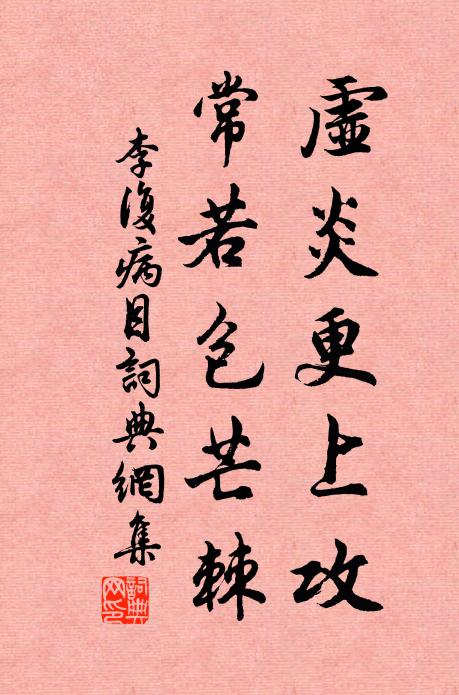 虛炎更上攻
常若包芒棘
李復病目詞典網集
詞典网印